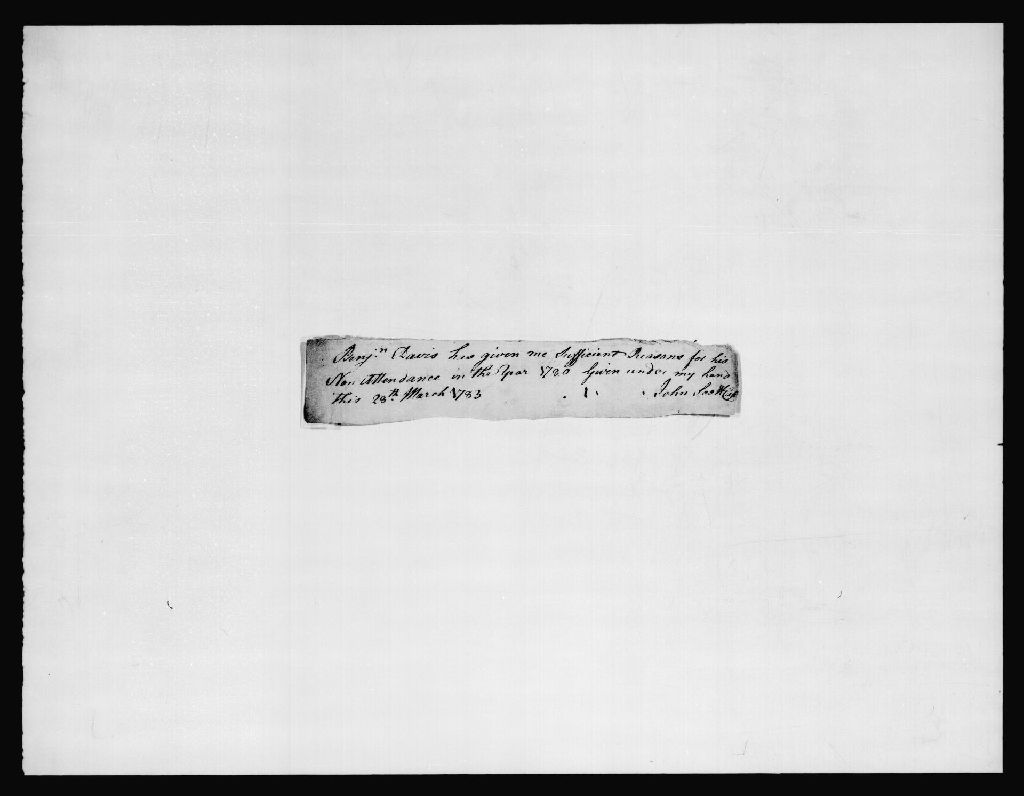 Benj.n Davis has given me Sufficient Reasons for his
Non Attendance in the Year 1780 Given under my hand
this 28th March 1783 John Scott